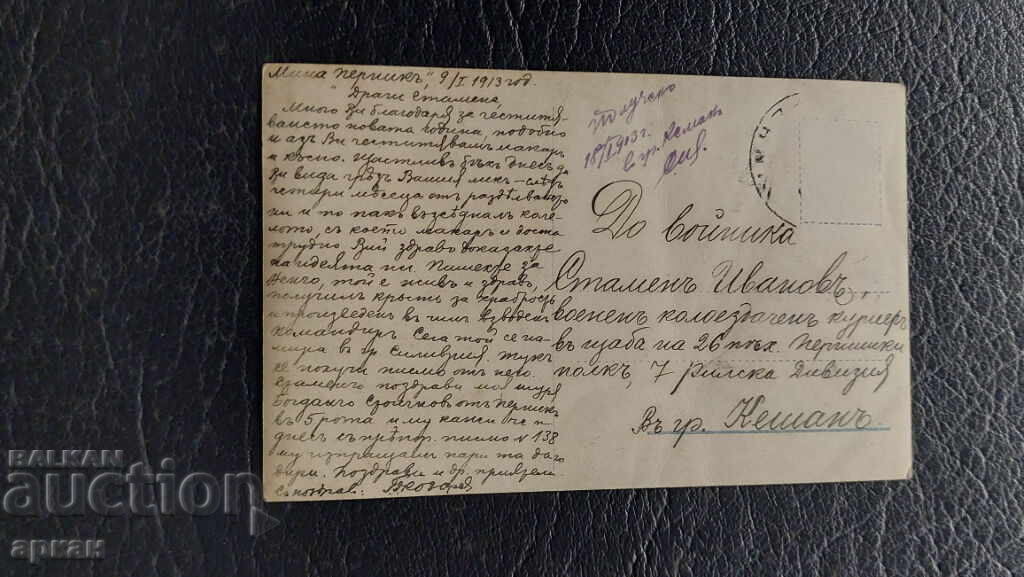 Мина Перникъ", 9/I 1913 год.
Драги Стамене,
Много Ви благодаря за честитя-
ванието новата година, подобно
и азъ Ви честитявамъ макаръ
и късно. Щастливъ бѣхъ днесъ да
Ви видя Вашия ликъ - слѣдъ
четири месеца отъ
ни и то пакъ възсѣдналъ коле-
лото, съ което макаръ и доста
трудно, Вий здраво доказахте
на идеята ни. Пишете за
Ненчо, той е живъ и здравъ,
получилъ кръстъ за храбростъ
и произведенъ въ чинъ взводенъ
командиръ. Сега той се на-
мира въ гр. Силиврия. Тукъ
се получи писмо отъ него.
поздрави моя шуря
Богданчо Стойчковъ отъ Перникъ
въ 5 рота и му кажи че
днесъ съ препор. писмо N 138
му изпращамъ пари та да го
дири. Поздрави и др. приятели
Получено
18/I 1913 г.
в гр. Кешанъ
До войника
Стаменъ Ивановъ,
военен колоездаченъ куриеръ
въ щаба на 26 пѣх. Пернишки
полкъ, 7 Рилска Дивизия
Въ гр. Кешанъ.
BALKAN
auction
аркан